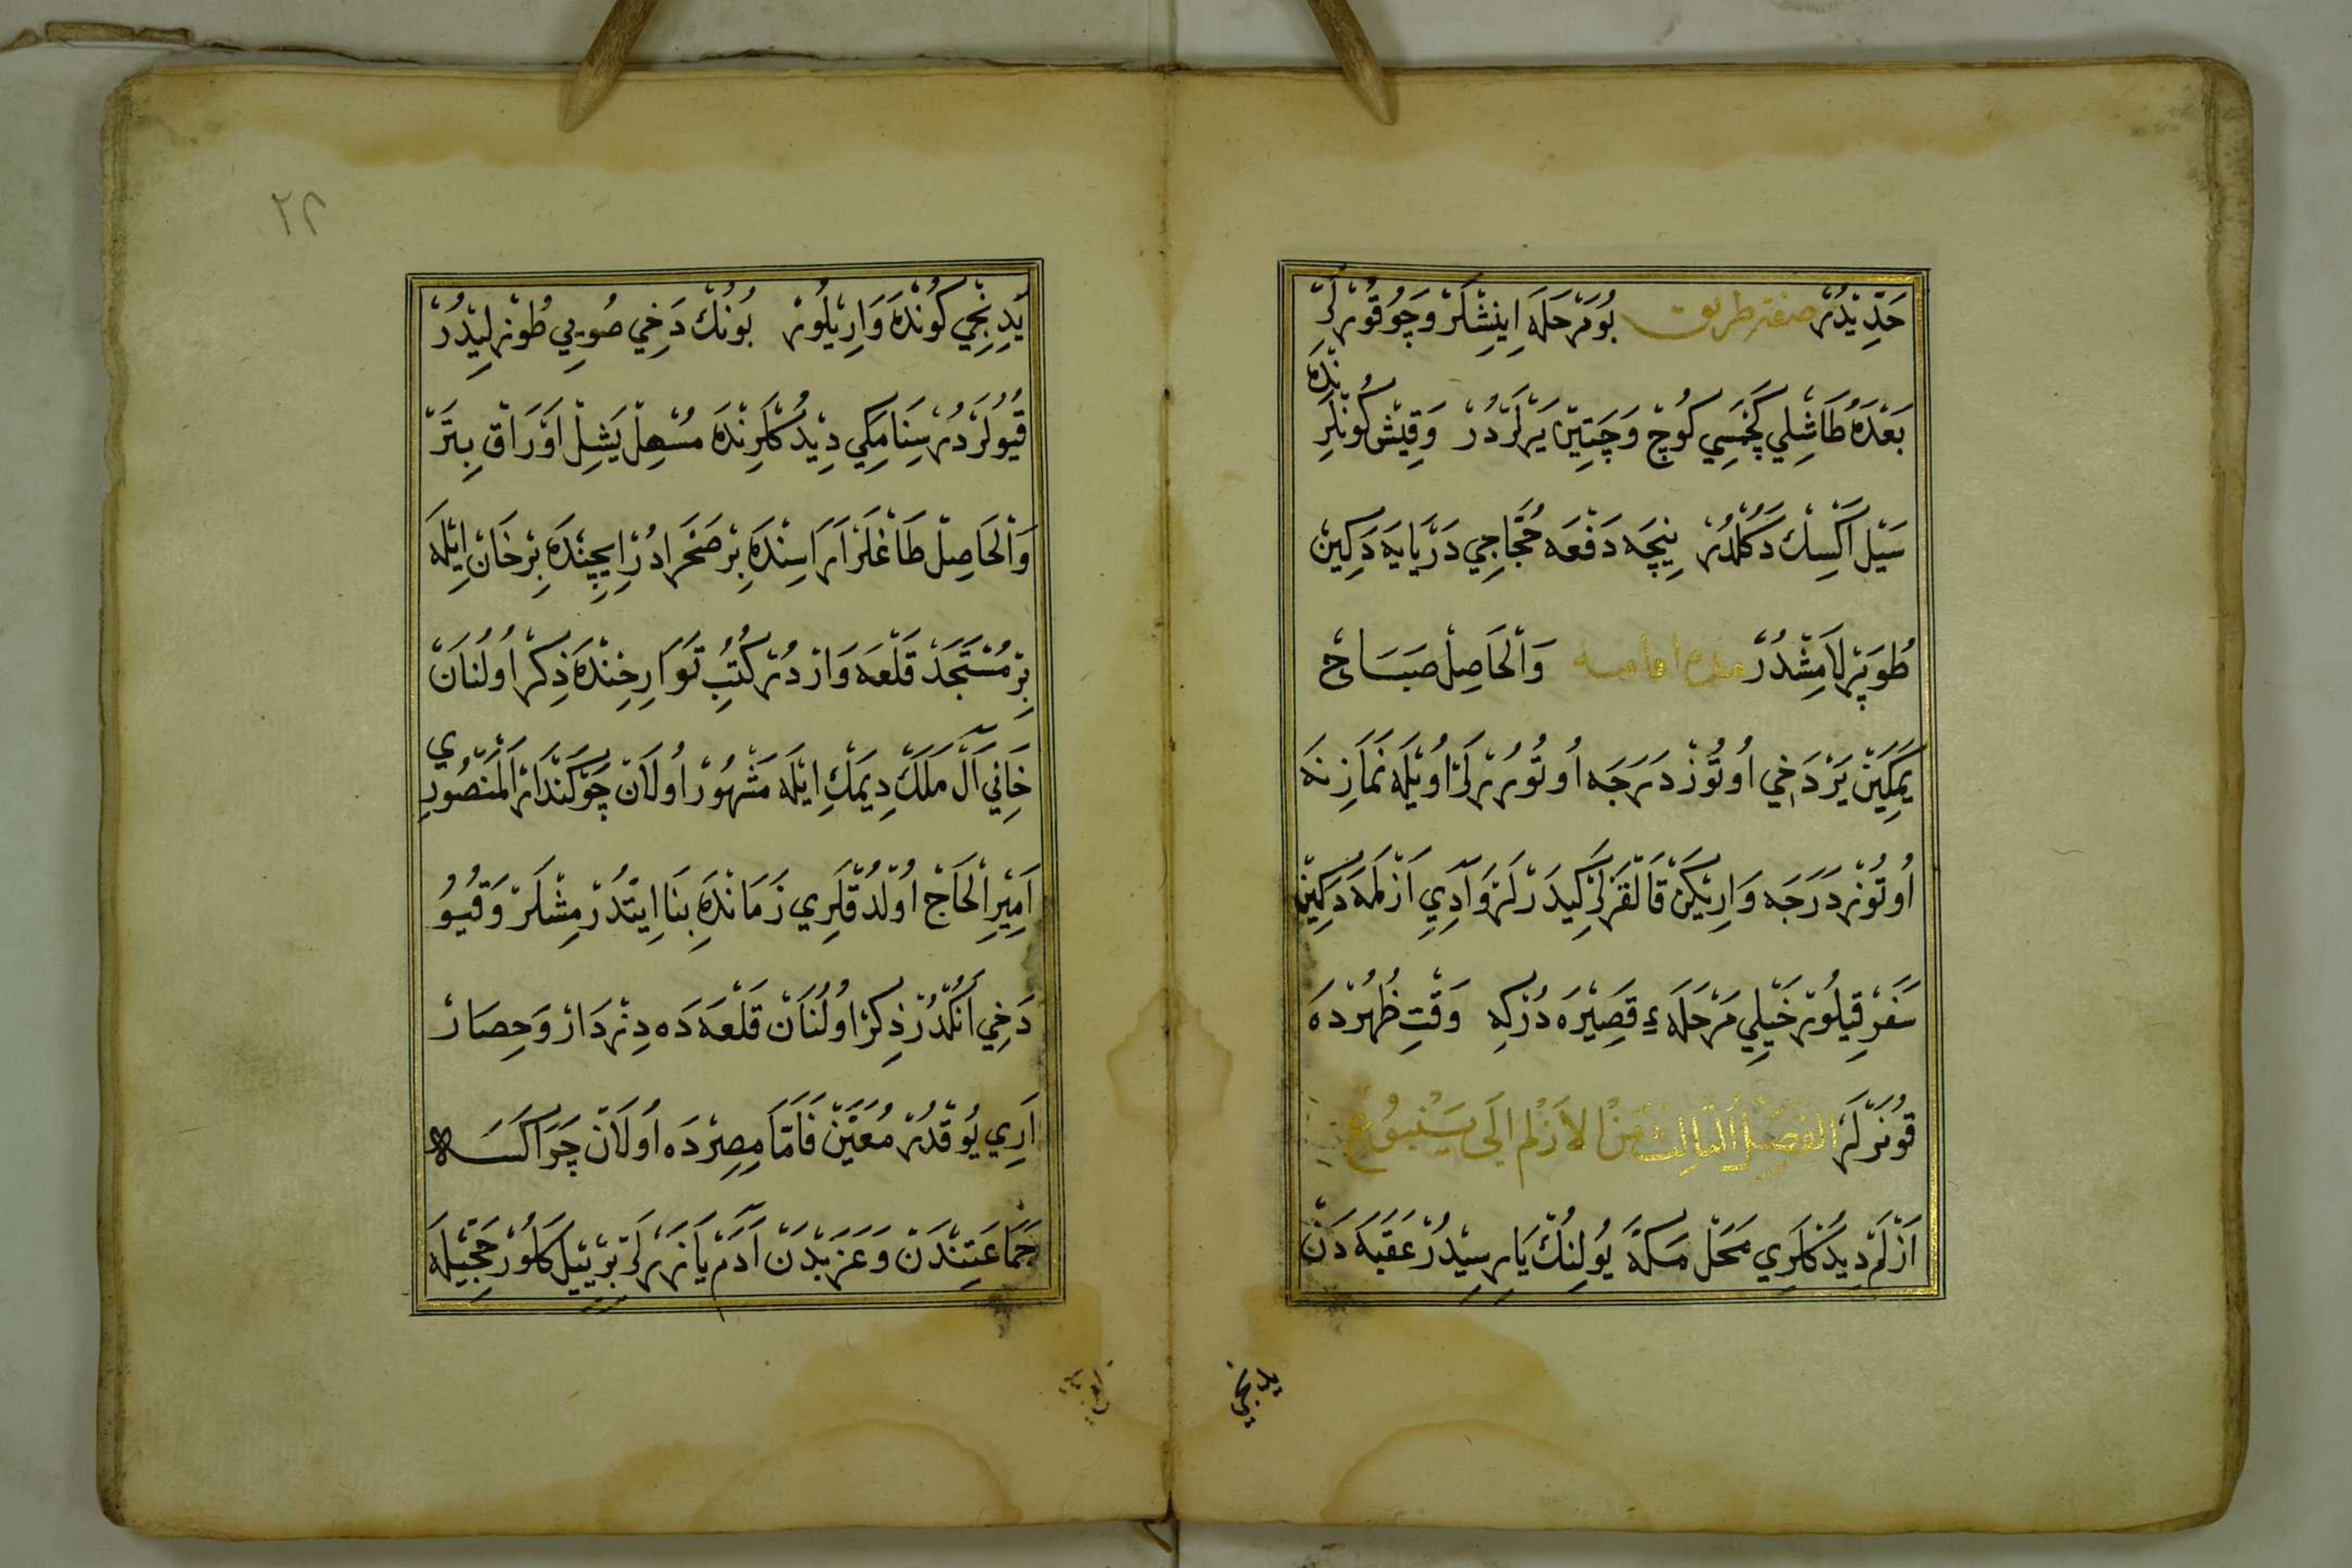 حَدِّيدُرْ صفت طريق بُومَرْحَلَه اِينِشْلَرْ وَچُوقُورْلَرْ
بَعْدَهُ طَاشْلِي كَچْمَسِي كُوجْ وَچَتِينْ يَرْلَرْدُرْ وَقِيشْ كُونْلَرِنْدَه
سَيْل اَكْسِكْ دَكُلْدُرْ نِيچَه دَفْعَه حُجَّاجِي دَرْيَايَه دَكِينْ
طُوپَرْلَامِشْدُرْ مدة اقامه وَالْحَاصِلْ صَبَاحْ
يَمَكِينْ يَرْ دَخِي اُوتُوزْ دَرَجَه اُوتُورُرْلَرْ اُويْلَه نَمَازِنَه
اُوتُوزْ دَرَجَه وَارِيكَنْ قَالْقَرْلَرْ كِيدَرْلَرْ وَادِيِ اَزْلَمَه دَكِينْ
سَفَرْ قِيلُورْ خَيْلِي مَرْحَلَهءِ قَصِيْرَه دُرْكِه وَقْتِ ظُهُرْدَه
قُونَرْلَرْ الفَصْلُ الثَّالِثُ مِنْ الاَزْلَم اِلَى يَنْبُوعْ
اَزْلَمْ دِيدُكْلَرِي مَحَلْ مَكَّه يُولِنُكْ يَارِسِيدُرْ عَقَبَه دَنْ
يدنجي
يَدِنْجِي كُونْدَه وَارِيلُورْ بُونُكْ دَخِي صُويِي طُوزْلِيدُرْ
قُيُولَرْدُرْ سِنَامَكِي دِيدُكْلَرِنْدَه مُسْهِلْ يَشِلْ اَوْرَاقْ بِتَرْ
وَالْحَاصِلْ طَاغْلَرْ اَرَاسِنْدَه بِرْ صَحْرَادُرْ اِيچِنْدَه بِرْ خَانْ اِيْلَه
بِرْ مُسْتَجَدْ قَلْعَه وَارْدُرْ كُتُبِ تَوَارِخِنْدَه ذِكْرْ اُولُنَانْ
خَانِي آلْ مَلَكْ دِيمَكِ اِيْلَه مَشْهُورْ اُولَانْ چَوْكَنْدَارْ الْمَنْصُورِي
اَمِيْرِ الْحَاجْ اُولْدُقْلَرِي زَمَانْدَه بِنَا اِيتْدُرْمِشْلَرْ وَقُيُو
دَخِي آنْكُلْدُرْ ذِكْرْ اُولُنَانْ قَلْعَه دَه دِزْدَارْ وَحِصَارْ
اَرِي يُوقْدُرْ مُعَيَّنْ فَاَمَّا مِصِرْدَه اُولَانْ چَرَاكَسَه
جَمَاعَتِنْدَنْ وَعَزَبْدَنْ آدَمْ يَازَرْلَرْ بَرْ يِيلْ كَلُورْ حَجِّيْلَه